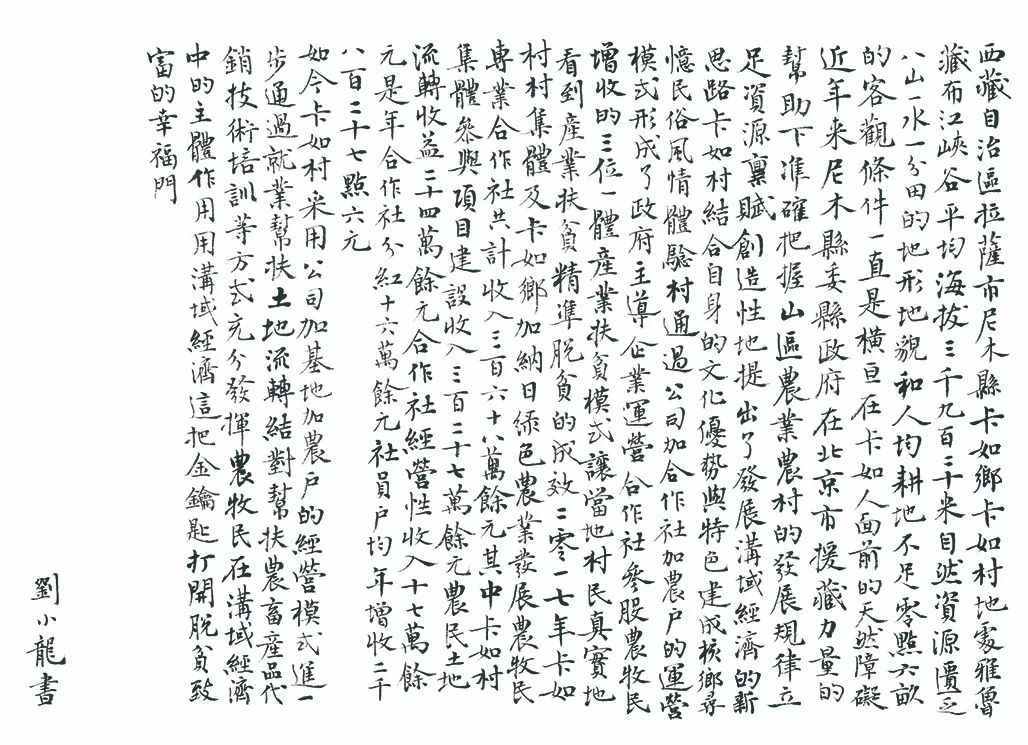 西藏自治區拉薩市尼木縣卡如鄉卡如村地處雅魯
藏布江峽谷平均海拔三千九百二十米自然資源匱乏
八山一水一分田的地形地貌和人均耕地不足零點六畝
的客觀條件一直是橫亘在卡如人面前的天然障礙
近年来尼木縣委縣政府在北京市援藏力量的
幫助下准確把握山區農業農村的發展規律立
足資源禀賦創造性地提出了發展溝域經濟的新
思路卡如村結合自身的文化優勢與特色建成核鄉尋
憶民俗風情體驗村通過公司加合作社加農户的運營
模式形成了政府主導企業運營合作社參股農牧民
增收的三位一體産業扶貧模式讓當地村民真實地
看到産業扶貧精準脱貧的成效二零一七年卡如
村村集體及卡如鄉加納日绿色農業發展農牧民
專業合作社共計收入三百六十八萬餘元其中卡如村
集體參與項目建設收入三百二十七萬餘元農民土地
流轉收益二十四萬餘元合作社經營性收入十七萬餘
元是年合作社分紅十六萬餘元社員户均年增收二千
八百二十七點六元
如今卡如村采用公司加基地加農户的經營模式進一
步通過就業幫扶土地流轉結對幫扶農畜産品代
銷技術培訓等方式充分發揮農牧民在溝域經濟
中的主體作用用溝域經濟這把金鑰匙打開脱貧致
富的幸福門
劉小龍書